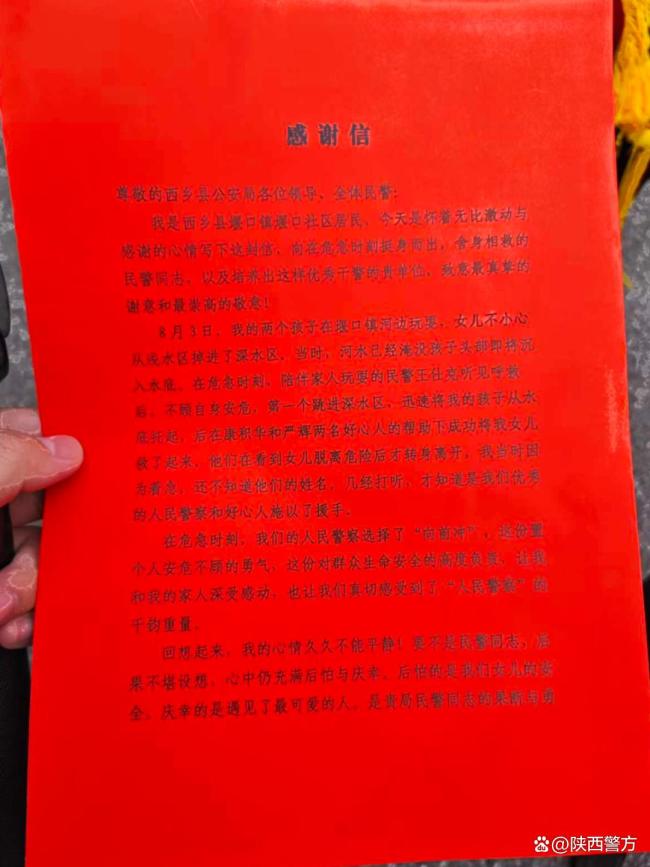 感谢信
尊敬的西乡县公安局各位领导、全体民警：
我是西乡县堰口镇堰口社区居民，今天是怀着无比激动与
感谢的心情写下这封信，向在危急时刻挺身而出，舍身相救的
民警同志，以及培养出这样优秀干警的贵单位，致意最真挚的
谢意和最崇高的敬意！
8月3日，我的两个孩子在堰口镇河边玩耍，女儿不小心
从浅水区掉进了深水区，当时，河水已经淹没孩子头部即将沉
入水底。在危急时刻，陪伴家人玩耍的民警王仕克听见呼救
后，不顾自身安危，第一个跳进深水区，迅速将我的孩子从水
底托起，后在康积华和严辉两名好心人的帮助下成功将我女儿
救了起来，他们在看到女儿脱离危险后才转身离开，我当时因
为着急，还不知道他们的姓名，几经打听，才知道是我们优秀
的人民警察和好心人施以了援手。
在危急时刻，我们的人民警察选择了“向前冲”，这份置
个人安危不顾的勇气，这份对群众生命安全的高度负责，让我
和我的家人深受感动，也让我们真切感受到了“人民警察”的
千钧重量。
回想起来，我的心情久久不能平静！要不是民警同志，后
果不堪设想，心中仍充满后怕与庆幸。后怕的是我们女儿的安
全，庆幸的是遇见了最可爱的人。是贵局民警同志的果断与勇
陕西警方